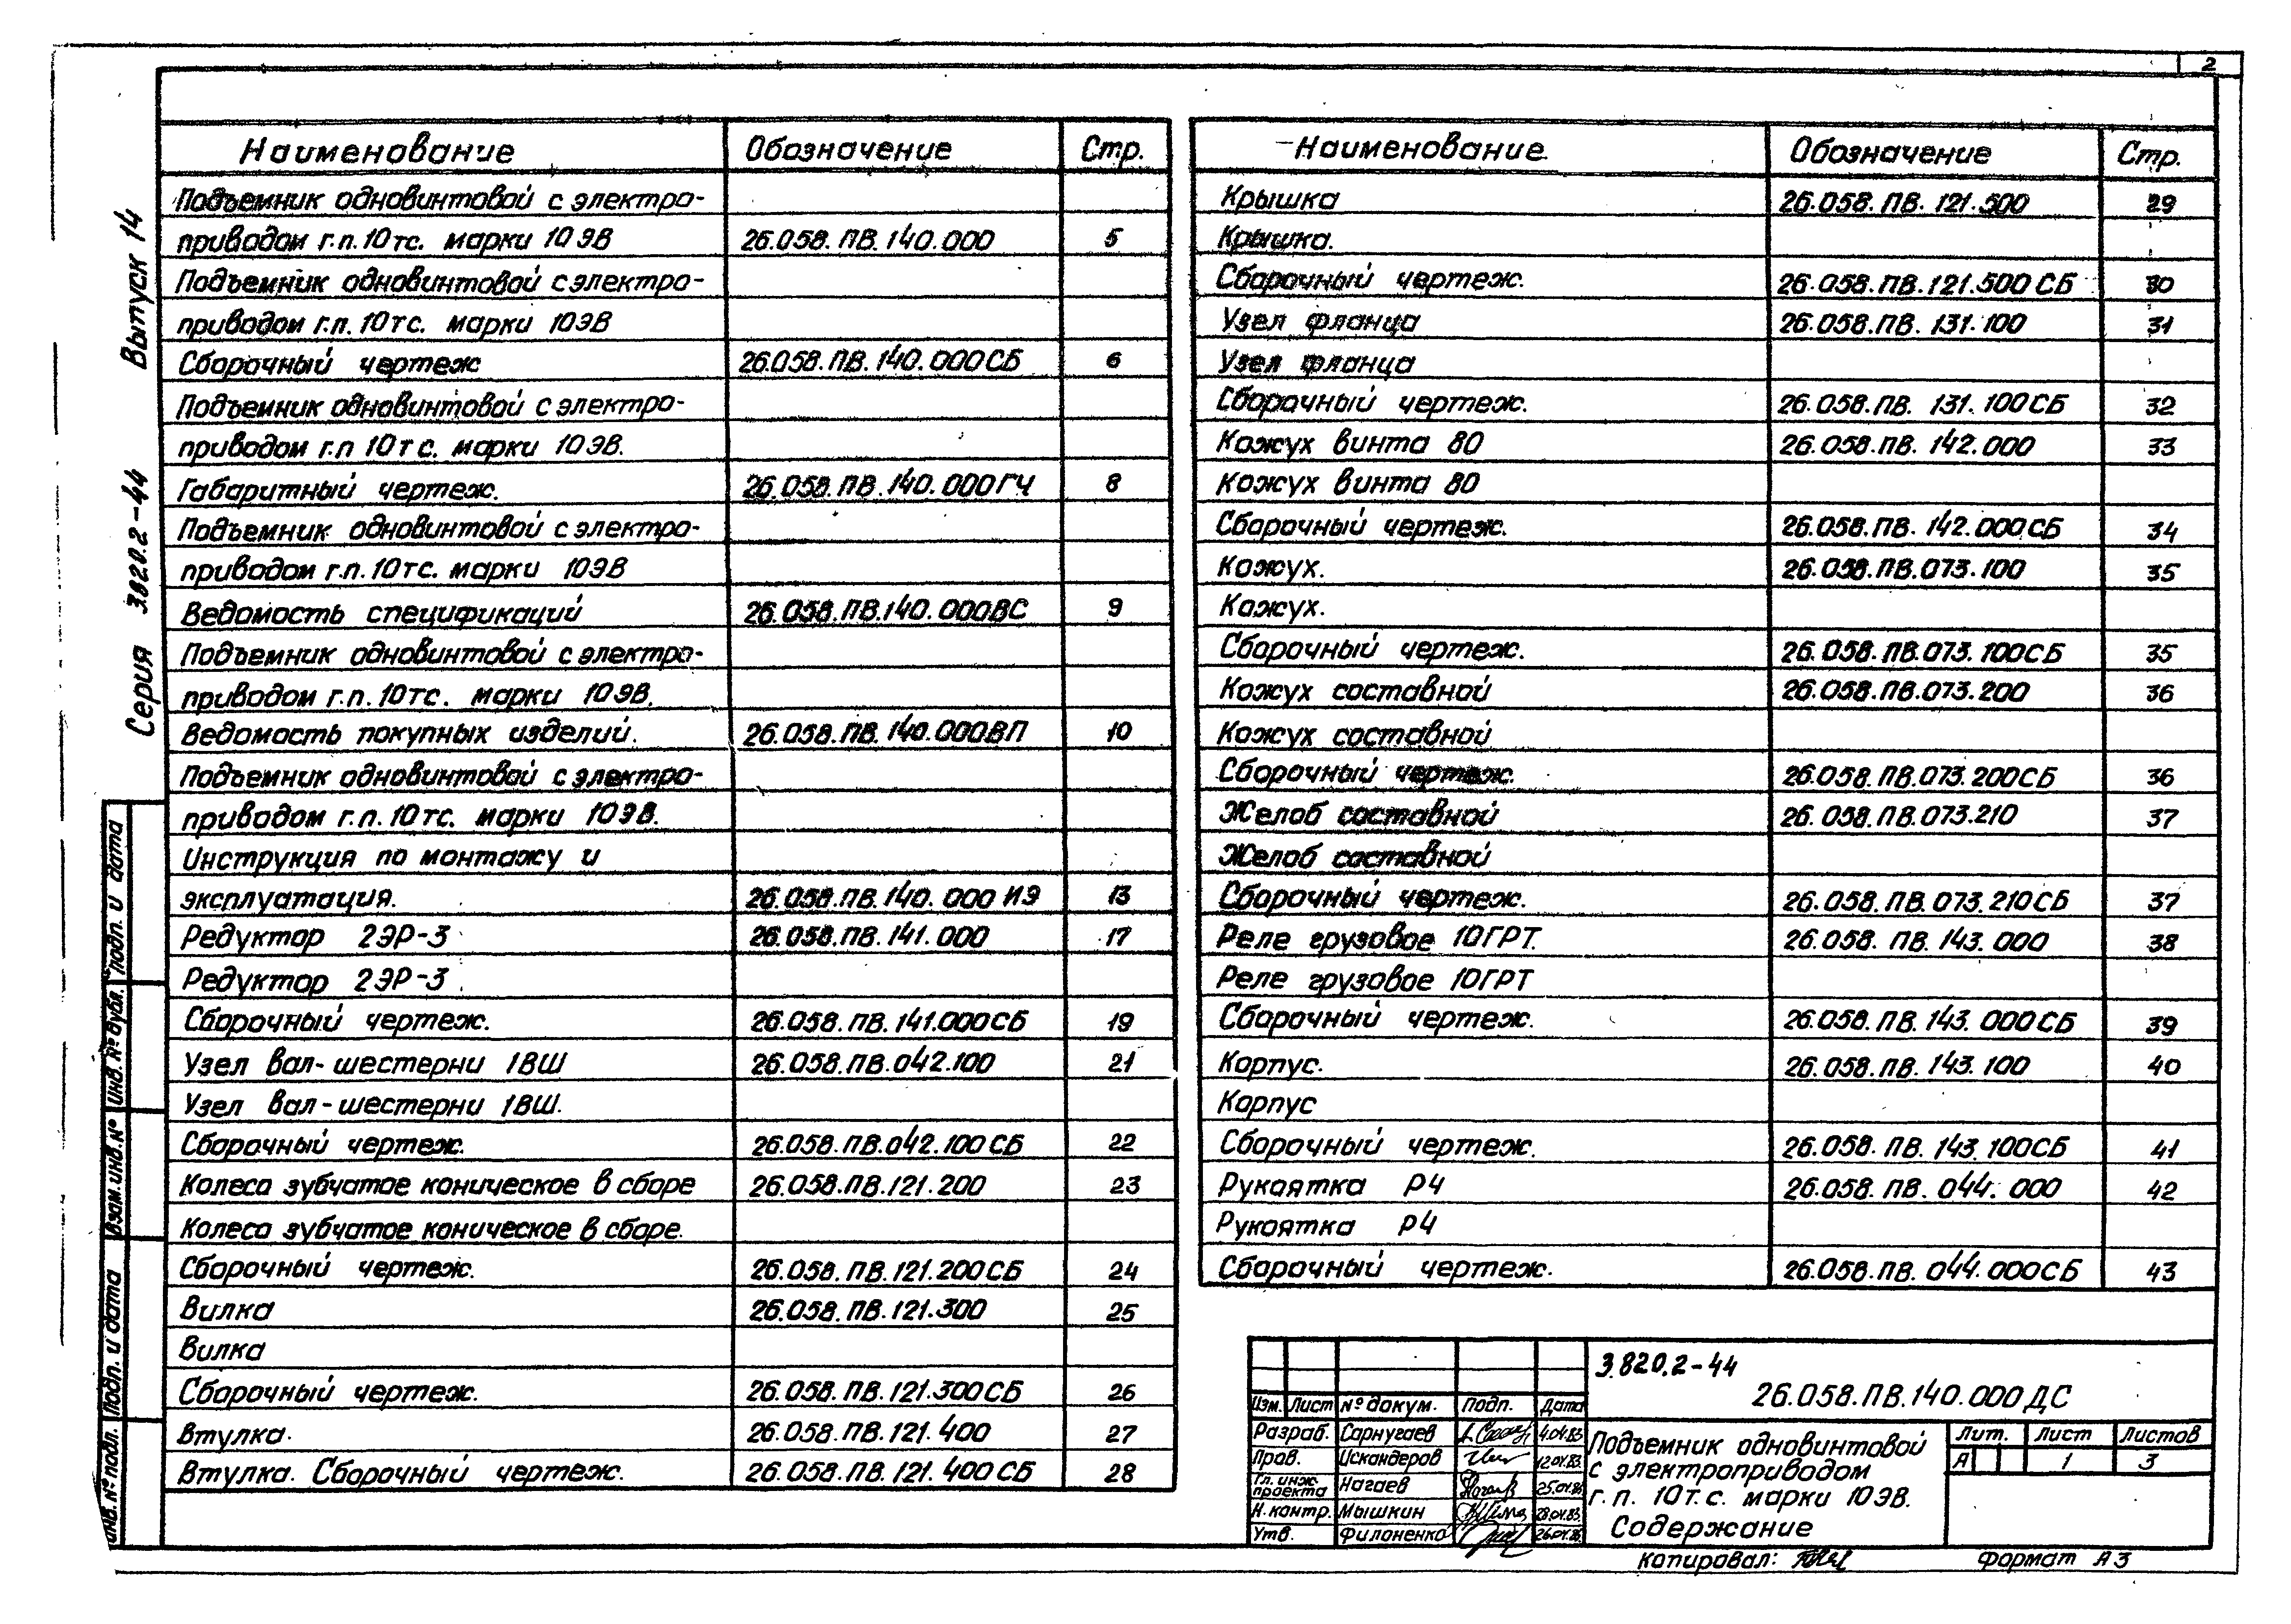 2
Серия 3.820.2-44 Выпуск 14
Наименование Обозначение Стр.
Подъемник одновинтовой с электро-
приводом г.п. 10 тс. марки 10 ЭВ 26.058.ПВ.140.000 5
Подъемник одновинтовой с электро-
приводом г.п. 10 тс. марки 10ЭВ
Сборочный чертеж 26.058.ПВ.140.000СБ 6
Подъемник одновинтовой с электро-
приводом г.п 10 тс. марки 10ЭВ.
Габаритный чертеж. 26.058.ПВ.140.000ГЧ 8
Подъемник одновинтовой с электро-
приводом г.п. 10 тс. марки 10ЭВ
Ведомость спецификаций 26.058.ПВ.140.000ВС 9
Подъемник одновинтовой с электро-
приводом г.п. 10 тс. марки 10 ЭВ.
Ведомость покупных изделий. 26.058.ПВ.140.000ВП 10
Подъемник одновинтовой с электро-
приводом г.п. 10 тс. марки 10ЭВ.
Инструкция по монтажу и
эксплуатация. 26.058.ПВ.140.000 ИЭ 13
Редуктор 2ЭР-3 26.058.ПВ.141.000 17
Редуктор 2ЭР-3
Сборочный чертеж. 26.058.ПВ.141.000СБ 19
Узел вал-шестерни 1ВШ 26.058.ПВ.042.100 21
Узел вал-шестерни 1ВШ.
Сборочный чертеж. 26.058.ПВ.042.100 СБ 22
Колеса зубчатое коническое в сборе 26.058.ПВ.121.200 23
Колеса зубчатое коническое в сборе.
Сборочный чертеж. 26.058.ПВ.121.200СБ 24
Вилка 26.058.ПВ.121.300 25
Вилка
Сборочный чертеж. 26.058.ПВ.121.300СБ 26
Втулка. 26.058.ПВ.121.400 27
Втулка. Сборочный чертеж. 26.058.ПВ.121.400 СБ 28
Наименование Обозначение Стр.
Крышка 26.058.ПВ.121.500 29
Крышка.
Сборочный чертеж. 26.058.ПВ.121.500 СБ 30
Узел фланца 26.058.ПВ.131.100 31
Узел фланца
Сборочный чертеж. 26.058.ПВ.131.100СБ 32
Кожух винта 80 26.058.ПВ.142.000 33
Кожух винта 80
Сборочный чертеж. 26.058.ПВ.142.000СБ 34
Кожух. 26.058.ПВ.073.100 35
Кожух.
Сборочный чертеж. 26.058.ПВ.073.100СБ 35
Кожух составной 26.058.ПВ.073.200 36
Кожух составной
Сборочный чертеж. 26.058.ПВ.073.200СБ 36
Желоб составной 26.058.ПВ.073.210 37
Желоб составной
Сборочный чертеж. 26.058.ПВ.073.210СБ 37
Реле грузовое 10ГРТ. 26.058.ПВ.143.000 38
Реле грузовое 10ГРТ
Сборочный чертеж. 26.058.ПВ.143.000СБ 39
Корпус. 26.058.ПВ.143.100 40
Корпус
Сборочный чертеж. 26.058.ПВ.143.100СБ 41
Рукоятка Р4 26.058.ПВ.044.000 42
Рукоятка Р4
Сборочный чертеж. 26.058.ПВ.044.000СБ 43
Инв. № подл. Подп. и дата Взам. инв. № Инв. № дубл. Подп. и дата
3.820.2-44
26.058.ПВ.140.000 ДС
Изм. Лист № докум. Подп. Дата
Разраб. Сарнугаев 4.04.83
Пров. Искандеров 12.04.83
Гл. инж. проекта Нагаев
Н. контр. Мышкин
Утв. Филоненко
Подъемник одновинтовой
с электроприводом
г.п. 10 т.с. марки 10ЭВ.
Содержание
Лит. Лист Листов
А 1 3
Копировал: Формат А3